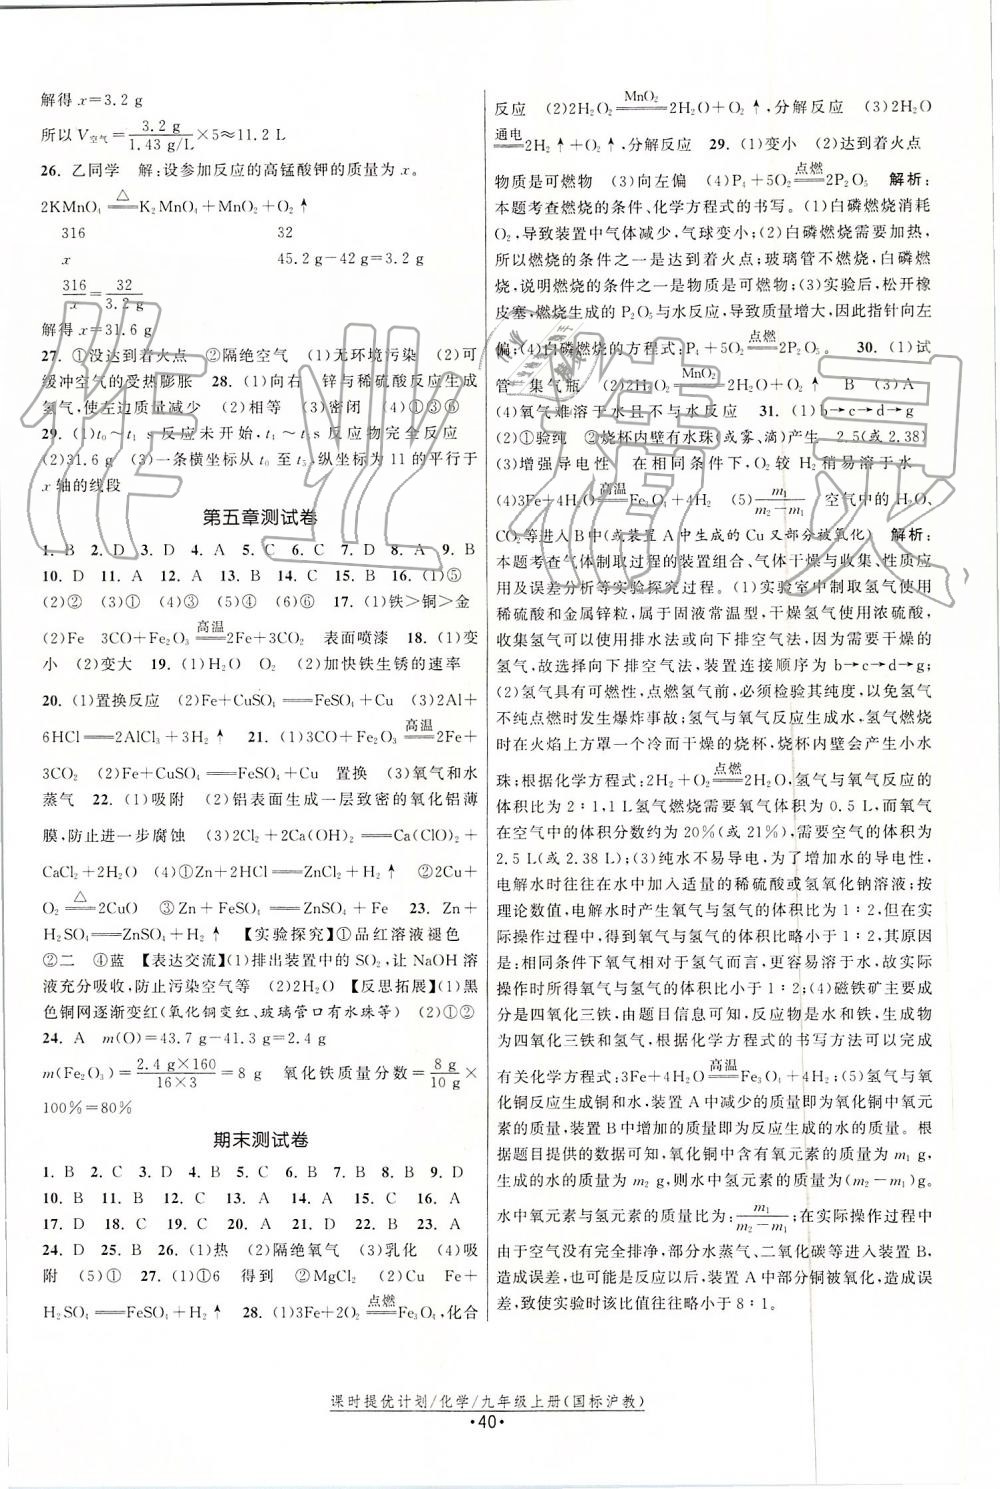 解得 x=3.2 g
所以 V空气=3.2 g/1.43 g/L×5≈11.2 L
26. 乙同学 解:设参加反应的高锰酸钾的质量为 x。
2KMnO₄ =△= K₂MnO₄+MnO₂+O₂↑
316 32
x 45.2 g-42 g=3.2 g
316/x=32/3.2 g
解得 x=31.6 g
27. ①没达到着火点 ②隔绝空气 (1)无环境污染 (2)可
缓冲空气的受热膨胀 28. (1)向右 锌与稀硫酸反应生成
氢气,使左边质量减少 (2)相等 (3)密闭 (4)①③⑥
29. (1)t₀~t₁ s 反应未开始,t₁~t₅ s 反应物完全反应
(2)31.6 g (3)一条横坐标从 t₀ 至 t₅,纵坐标为 11 的平行于
x 轴的线段
第五章测试卷
1. B 2. D 3. D 4. A 5. C 6. C 7. D 8. A 9. B
10. D 11. A 12. A 13. D 14. D 15. B 16. (1)⑤
(2)② (3)① (4)③ (5)④ (6)⑥ 17. (1)铁>铜>金
(2)Fe 3CO+Fe₂O₃ =高温= 2Fe+3CO₂ 表面喷漆 18. (1)变
小 (2)变大 19. (1)H₂O O₂ (2)加快铁生锈的速率
20. (1)置换反应 (2)Fe+CuSO₄=FeSO₄+Cu (3)2Al+
6HCl=2AlCl₃+3H₂↑ 21. (1)3CO+Fe₂O₃ =高温= 2Fe+
3CO₂ (2)Fe+CuSO₄=FeSO₄+Cu 置换 (3)氧气和水
蒸气 22. (1)吸附 (2)铝表面生成一层致密的氧化铝薄
膜,防止进一步腐蚀 (3)2Cl₂+2Ca(OH)₂=Ca(ClO)₂+
CaCl₂+2H₂O (4)①Zn+2HCl=ZnCl₂+H₂↑ ②2Cu+
O₂ =△= 2CuO ③Zn+FeSO₄=ZnSO₄+Fe 23. Zn+
H₂SO₄=ZnSO₄+H₂↑ 【实验探究】①品红溶液褪色
②二 ④蓝 【表达交流】(1)排出装置中的 SO₂,让 NaOH 溶
液充分吸收,防止污染空气等 (2)H₂O 【反思拓展】(1)黑
色铜网逐渐变红(氧化铜变红、玻璃管口有水珠等) (2)①②
24. A m(O)=43.7 g-41.3 g=2.4 g
m(Fe₂O₃)=2.4 g×160/16×3=8 g 氧化铁质量分数=8 g/10 g×
100%=80%
期末测试卷
1. B 2. C 3. D 4. B 5. C 6. B 7. B 8. B 9. D
10. B 11. B 12. C 13. A 14. A 15. D 16. A
17. D 18. C 19. C 20. A 21. D 22. B 23. A
24. D 25. B 26. (1)热 (2)隔绝氧气 (3)乳化 (4)吸
附 (5)① 27. (1)①6 得到 ②MgCl₂ (2)Cu Fe+
H₂SO₄=FeSO₄+H₂↑ 28. (1)3Fe+2O₂ =点燃= Fe₃O₄,化合
反应 (2)2H₂O₂ =MnO₂= 2H₂O+O₂↑,分解反应 (3)2H₂O
=通电= 2H₂↑+O₂↑,分解反应 29. (1)变小 (2)达到着火点
物质是可燃物 (3)向左偏 (4)P₄+5O₂ =点燃= 2P₂O₅ 解析:
本题考查燃烧的条件、化学方程式的书写。(1)白磷燃烧消耗
O₂,导致装置中气体减少,气球变小;(2)白磷燃烧需要加热,
所以燃烧的条件之一是达到着火点;玻璃管不燃烧,白磷燃
烧,说明燃烧的条件之一是物质是可燃物;(3)实验后,松开橡
皮塞,燃烧生成的 P₂O₅ 与水反应,导致质量增大,因此指针向左
偏;(4)白磷燃烧的方程式:P₄+5O₂ =点燃= 2P₂O₅。 30. (1)试
管 集气瓶 (2)2H₂O₂ =MnO₂= 2H₂O+O₂↑ B (3)A
(4)氧气难溶于水且不与水反应 31. (1)b→c→d→g
(2)①验纯 ②烧杯内壁有水珠(或雾、滴)产生 2.5(或 2.38)
(3)增强导电性 在相同条件下,O₂ 较 H₂ 稍易溶于水
(4)3Fe+4H₂O =高温= Fe₃O₄+4H₂ (5)m₁/m₂-m₁ 空气中的 H₂O、
CO₂ 等进入 B 中(或装置 A 中生成的 Cu 又部分被氧化) 解析:
本题考查气体制取过程的装置组合、气体干燥与收集、性质应
用及误差分析等实验探究过程。(1)实验室中制取氢气使用
稀硫酸和金属锌粒,属于固液常温型,干燥氢气使用浓硫酸,
收集氢气可以使用排水法或向下排空气法,因为需要干燥的
氢气,故选择向下排空气法,装置连接顺序为 b→c→d→g;
(2)氢气具有可燃性,点燃氢气前,必须检验其纯度,以免氢气
不纯点燃时发生爆炸事故;氢气与氧气反应生成水,氢气燃烧
时在火焰上方罩一个冷而干燥的烧杯,烧杯内壁会产生小水
珠;根据化学方程式:2H₂+O₂ =点燃= 2H₂O,氢气与氧气反应的
体积比为 2∶1,1 L 氢气燃烧需要氧气体积为 0.5 L,而氧气
在空气中的体积分数约为 20%(或 21%),需要空气的体积为
2.5 L(或 2.38 L);(3)纯水不易导电,为了增加水的导电性,
电解水时往往在水中加入适量的稀硫酸或氢氧化钠溶液;按
理论数值,电解水时产生氧气与氢气的体积比为 1∶2,但在实
际操作过程中,得到氧气与氢气的体积比略小于 1∶2,其原因
是:相同条件下氧气相对于氢气而言,更容易溶于水,故实际
操作时所得氧气与氢气的体积比小于 1∶2;(4)磁铁矿主要成
分是四氧化三铁,由题目信息可知,反应物是水和铁,生成物
为四氧化三铁和氢气,根据化学方程式的书写方法可以完成
有关化学方程式:3Fe+4H₂O =高温= Fe₃O₄+4H₂;(5)氢气与氧
化铜反应生成铜和水,装置 A 中减少的质量即为氧化铜中氧元
素的质量,装置 B 中增加的质量即为反应生成的水的质量。根
据题目提供的数据可知,氧化铜中含有氧元素的质量为 m₁ g,
生成的水的质量为 m₂ g,则水中氢元素的质量为(m₂-m₁)g。
水中氧元素与氢元素的质量比为:m₁/m₂-m₁;在实际操作过程中
由于空气没有完全排净,部分水蒸气、二氧化碳等进入装置 B,
造成误差,也可能是反应以后,装置 A 中部分铜被氧化,造成误
差,致使实验时该比值往往略小于 8∶1。
课时提优计划/化学/九年级上册(国标沪教)
·40·
作业精灵